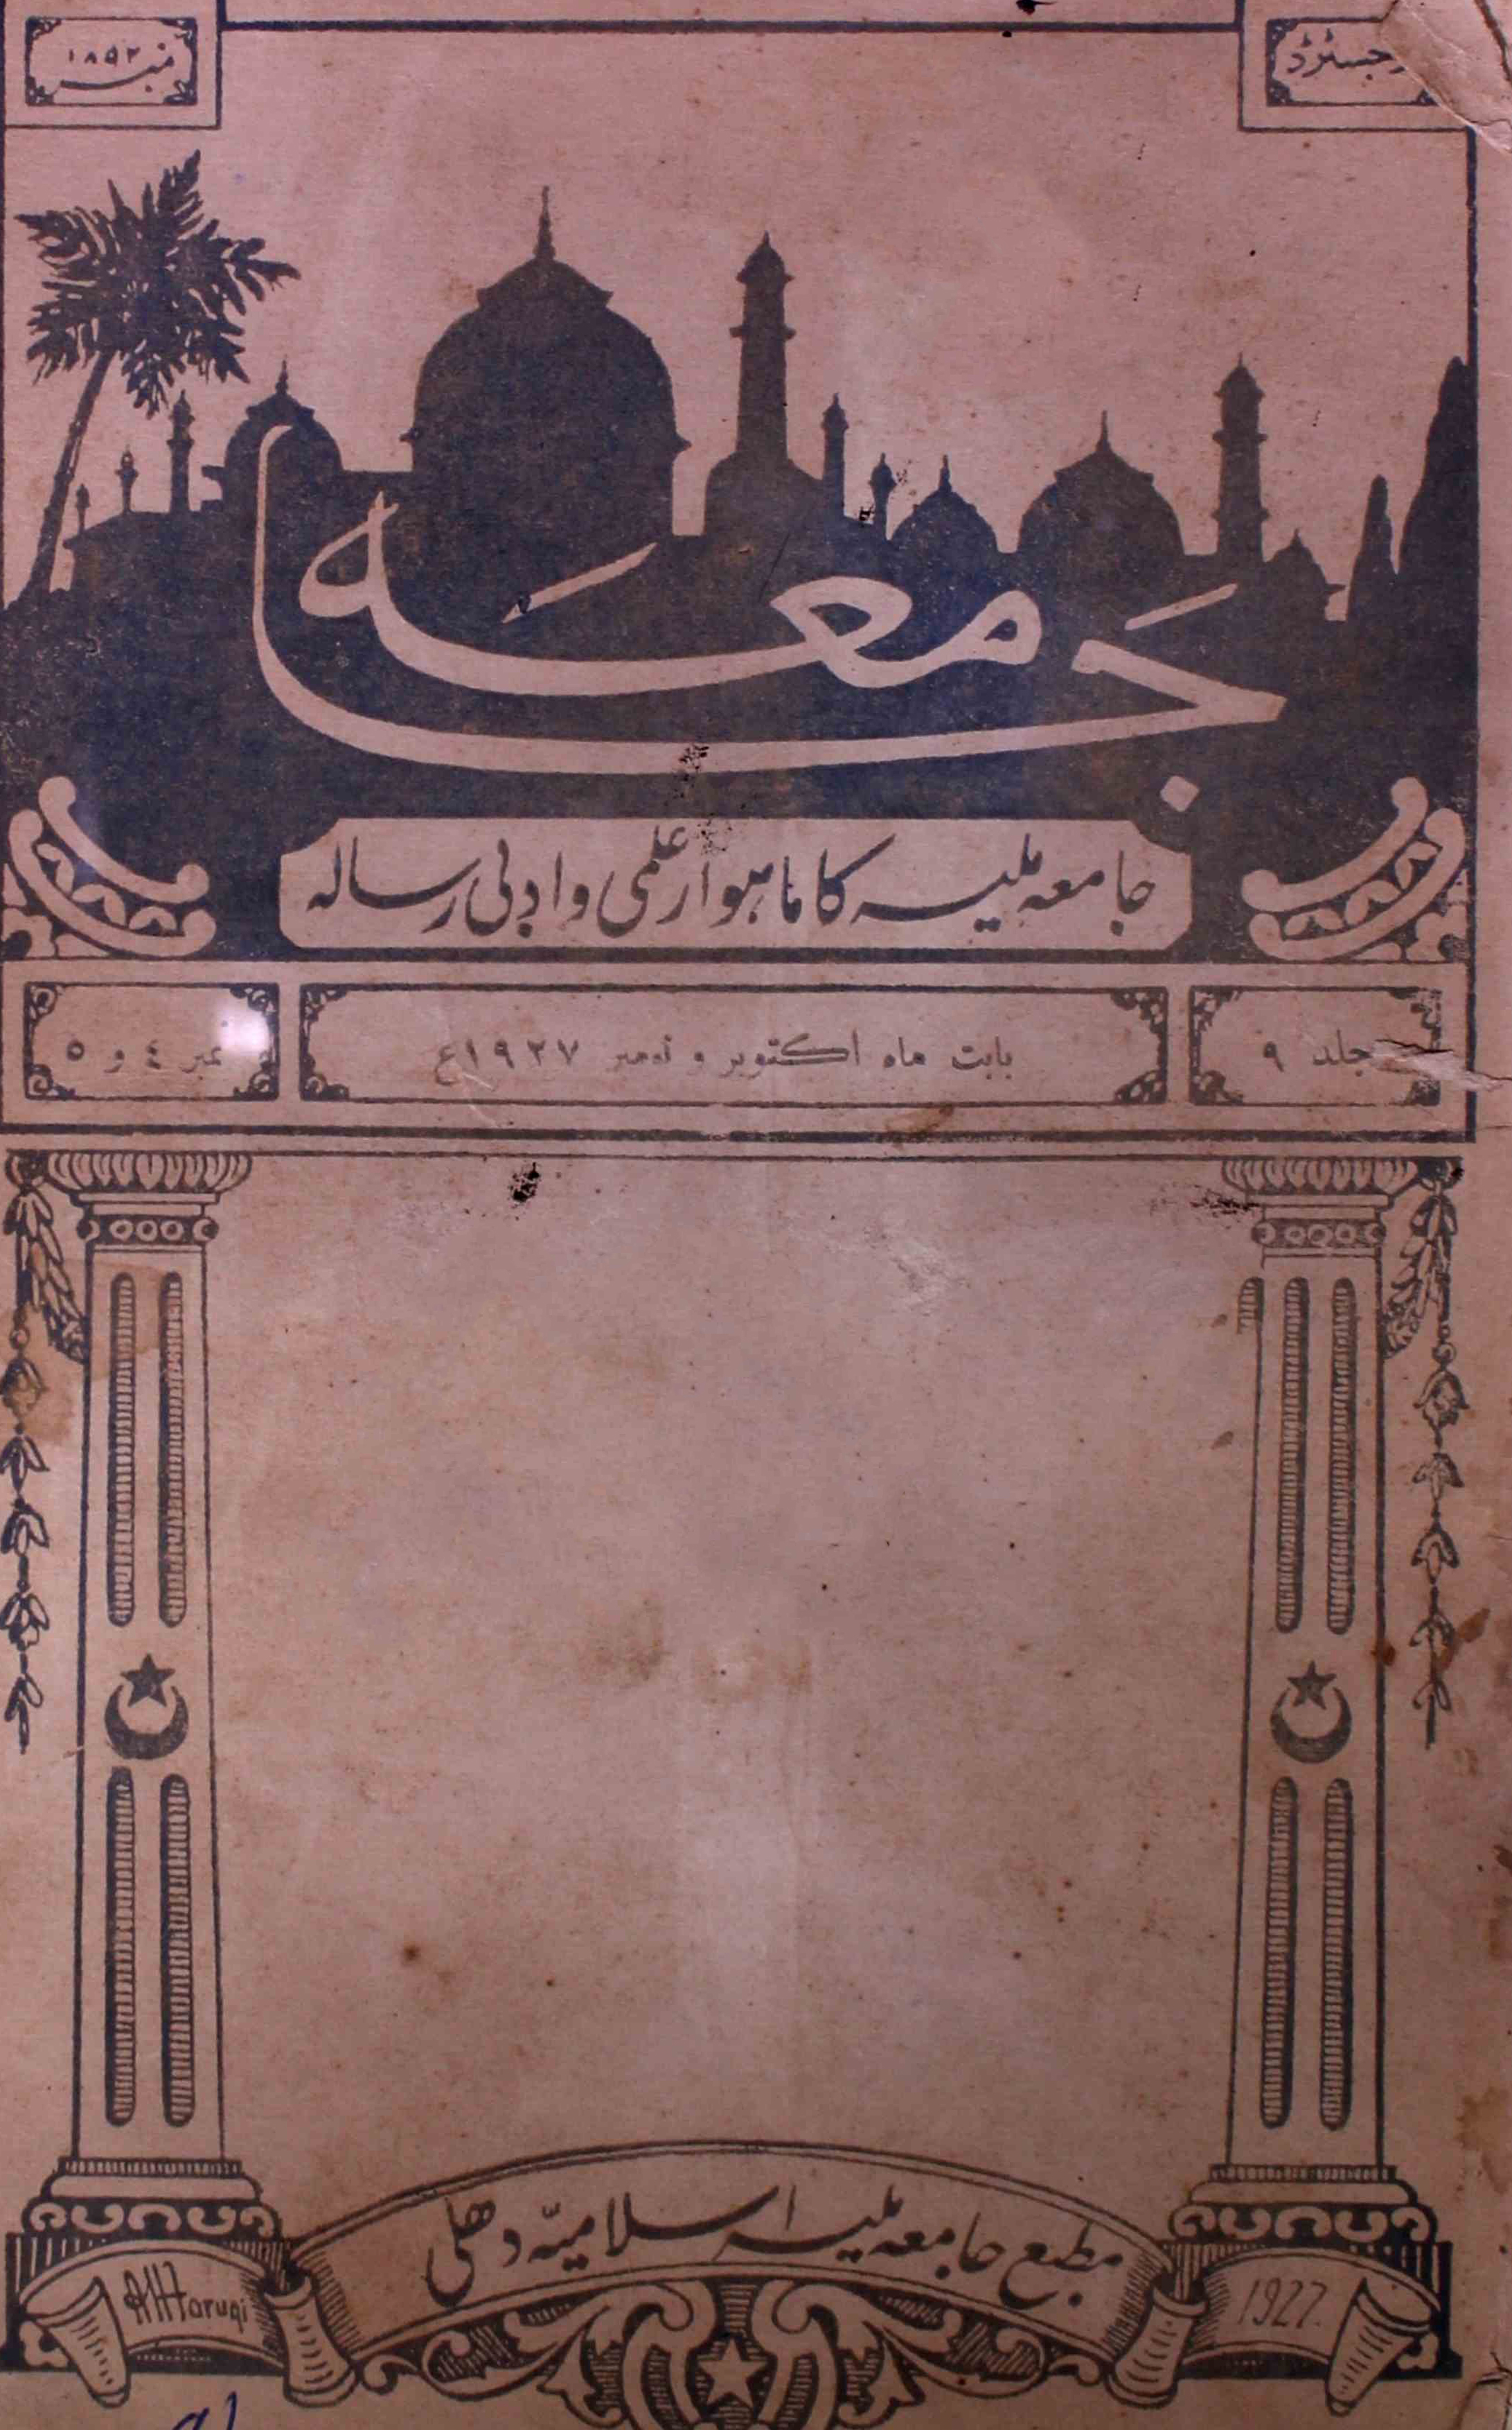 رجسٹرڈ
نمبر ١٨٥٢
جامعہ
جامعہ ملیہ کا ماہوار علمی و ادبی رسالہ
جلد ٩
بابت ماہ اکتوبر و نومبر ١٩٢٧ع
نمبر ٤ و ٥
مطبع جامعہ ملیہ اسلامیّہ دھلی
AHFaruqi
1927.